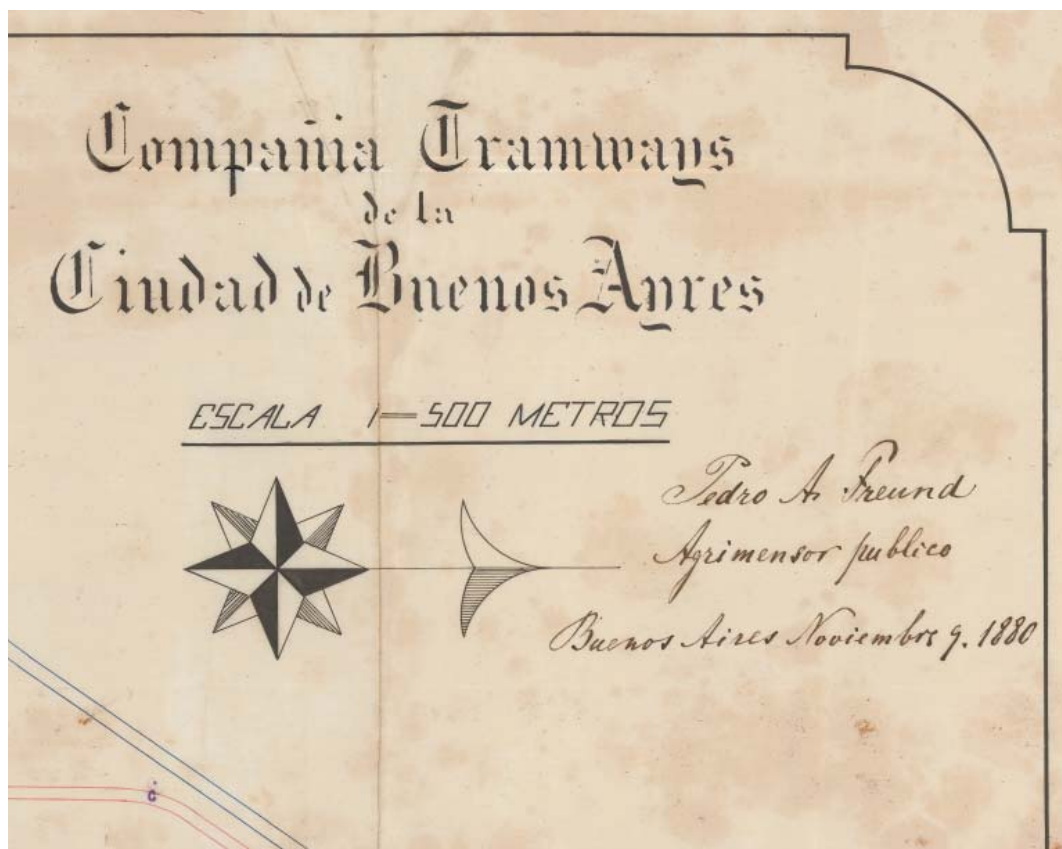 Compañia Tramways
de la
Ciudad de Buenos Ayres
ESCALA 1=500 METROS
Pedro A. Freund
Agrimensor publico
Buenos Aires Noviembre 9. 1880